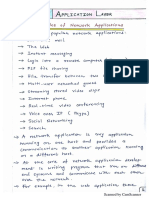 APPLICATION LAYER
Examples of Network Applications
popular network applications:
mail
→ The Web
→ Instant messaging
→ Login into a remote computer
→ P2P file sharing
→ File transfer between two
→ Multi-user network games
→ Streaming stored video clips
→ Internet phone
→ Real-time video conferencing
→ Voice over IP (Skype)
→ Social Networking
→ Search
→ A network application is any application
running on one host and provides a
communication to another application running
on a different host.
→ At the core of network application develop-
ment is writing programs that run on different
end systems and communicate with each
other over the network.
→ For example, in the web application there
Scanned by CamScanner